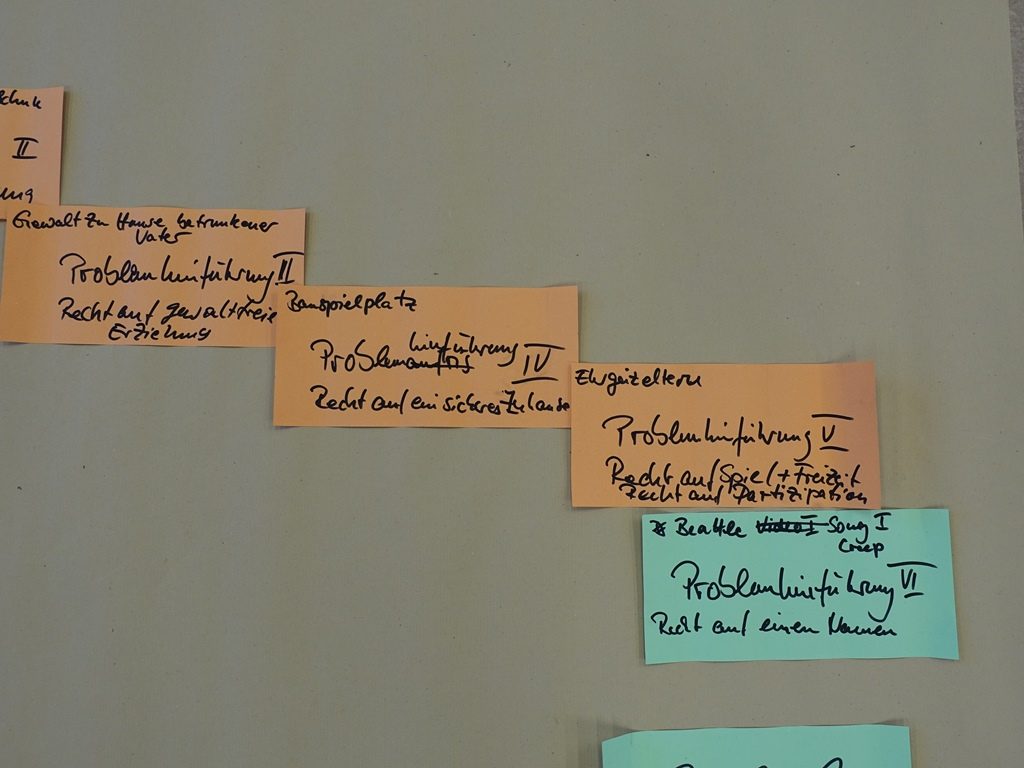 II
Gewalt zu Hause betrunkener
Vater
Problemhinführung III
Recht auf gewaltfreie
Erziehung
Bauspielplatz
hinführung
Problemaufriss IV
Recht auf ein sicheres Zuhause
Ehrgeizeltern
Problemhinführung V
Recht auf Spiel + Freizeit
Recht auf Partizipation
Beattile Video I Song I
Creep
Problemhinführung VI
Recht auf einen Namen